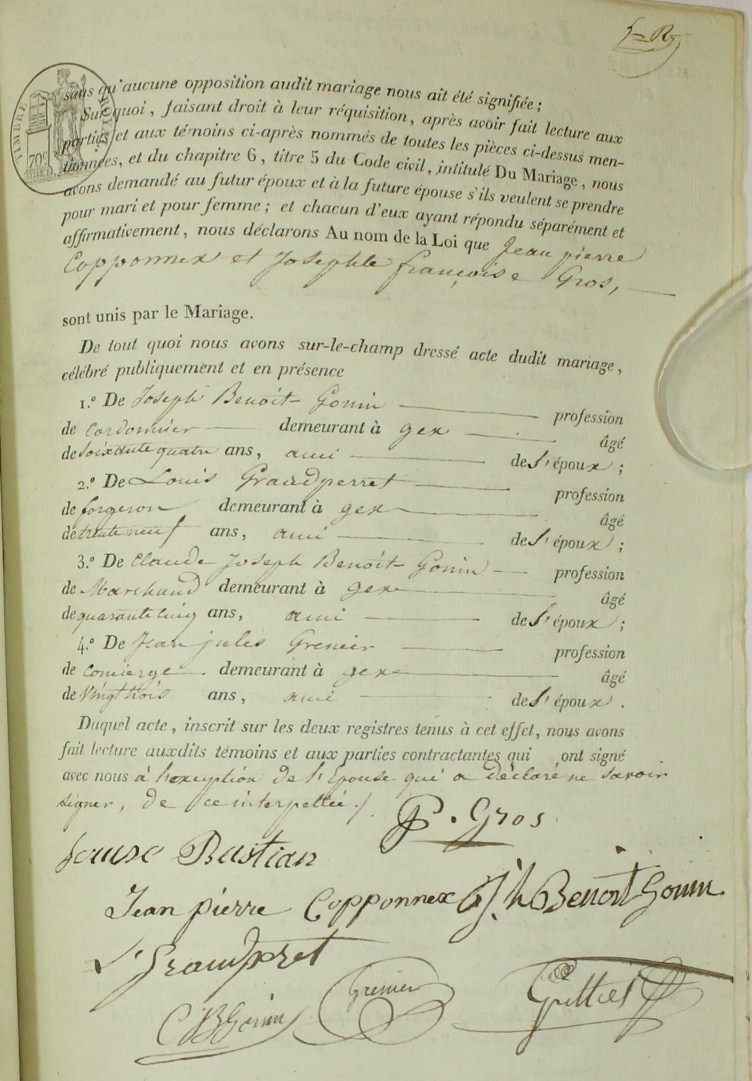 TIMBRE ROYAL
70c
sans qu'aucune opposition audit mariage nous ait été signifiée ;
Sur quoi, faisant droit à leur réquisition, après avoir fait lecture aux
parties et aux témoins ci-après nommés de toutes les pièces ci-dessus men-
tionnées, et du chapitre 6, titre 5 du Code civil, intitulé Du Mariage, nous
avons demandé au futur époux et à la future épouse s'ils veulent se prendre
pour mari et pour femme ; et chacun d'eux ayant répondu séparément et
affirmativement, nous déclarons Au nom de la Loi que Jean pierre
Copponnex et Josephte françoise Gros,
sont unis par le Mariage.
De tout quoi nous avons sur-le-champ dressé acte dudit mariage,
célébré publiquement et en présence
1.º De Joseph Benoit Gonin profession
de Cordonnier demeurant à gex âgé
de soixante quatre ans, ami de l'époux ;
2.º De Louis Grandperret profession
de forgeron demeurant à gex âgé
de trente neuf ans, ami de l'époux ;
3.º De Claude Joseph Benoit Gonin profession
de Marchand demeurant à gex âgé
de quarante cinq ans, ami de l'époux ;
4.º De Jean jules Grenier profession
de Concierge demeurant à gex âgé
de vingt trois ans, ami de l'époux .
Duquel acte, inscrit sur les deux registres tenus à cet effet, nous avons
fait lecture auxdits témoins et aux parties contractantes qui ont signé
avec nous à l'exception de l'Epouse qui a déclaré ne savoir
signer, de ce interpellée ./.
P. Gros
Bastian
Jean pierre Copponnex Jh Benoit Gonin
L' Grandperret
C J B Gonin Grenier